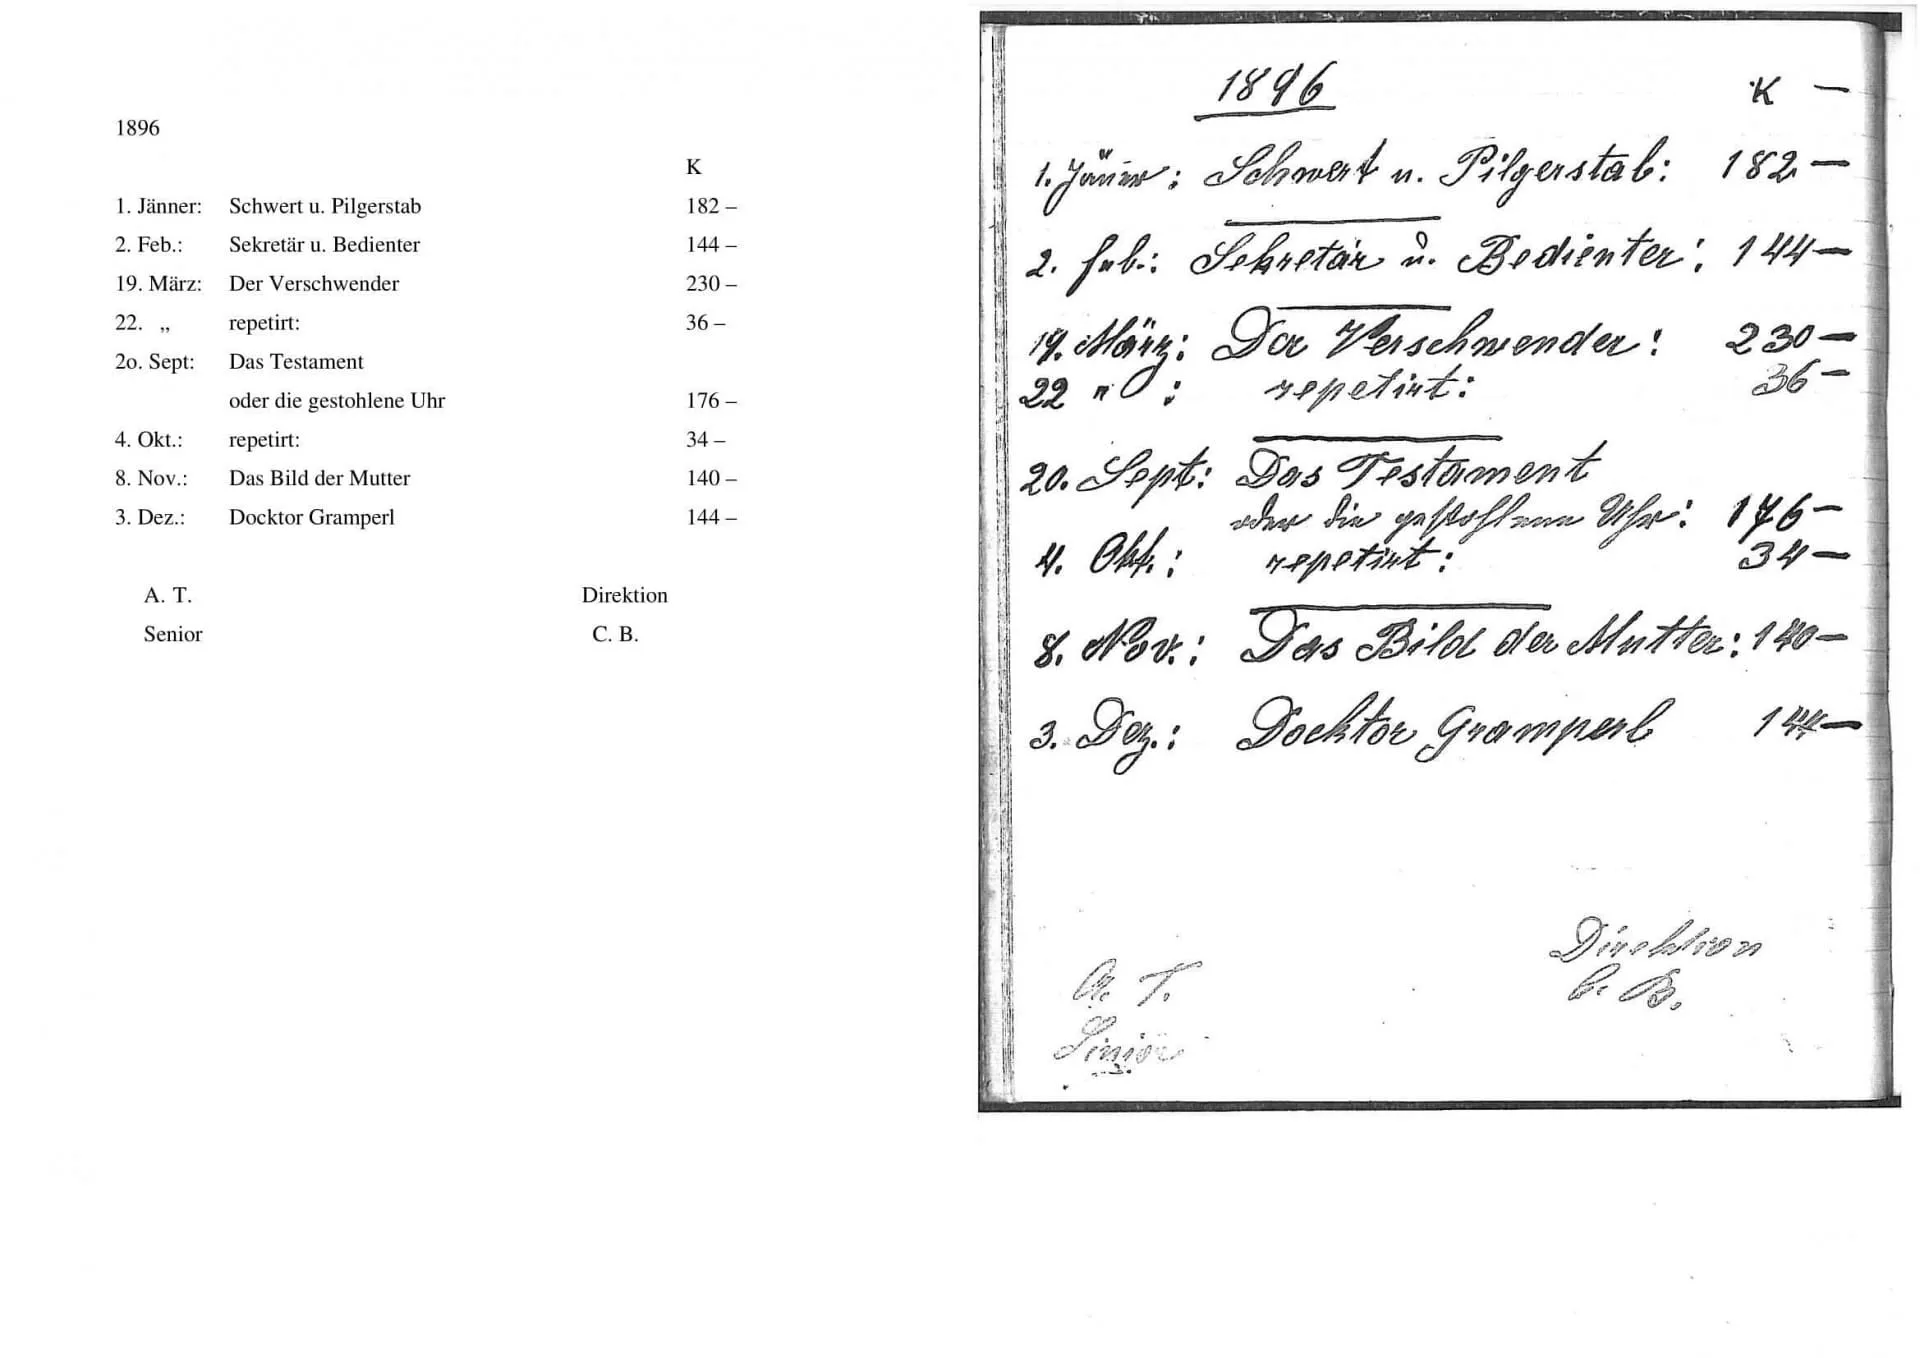 1896
K
1. Jänner: Schwert u. Pilgerstab 182 –
2. Feb.: Sekretär u. Bedienter 144 –
19. März: Der Verschwender 230 –
22. „ repetirt: 36 –
2o. Sept: Das Testament
oder die gestohlene Uhr 176 –
4. Okt.: repetirt: 34 –
8. Nov.: Das Bild der Mutter 140 –
3. Dez.: Docktor Gramperl 144 –
A. T. Direktion
Senior C. B.
1896 K —
1. Jänner: Schwert u. Pilgerstab: 182 —
2. Feb.: Sekretär u. Bedienter: 144 —
19. März: Der Verschwender: 230 —
22 " : repetirt: 36 —
20. Sept: Das Testament
oder die gestohlene Uhr: 176 —
4. Okt.: repetirt: 34 —
8. Nov.: Das Bild der Mutter: 140 —
3. Dez.: Docktor Gramperl 144 —
Direktion
C. B.
A. T.
Senior